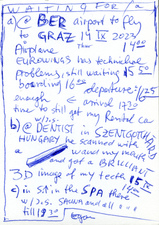 WAITING FOR/a
a) @ BER airport to fly
to GRAZ 14 IX 2023
Airplane Thor 14:20
EUROWINGS has technical
problems, still waiting 15 50
boarding 16 departure: 16 25
enough arrival 17 20
time to still get my Rental Car
w/J.S.
b) @ DENTIST in SZENTGOTTHARD
HUNGARY he scanned with
a around my mouth
and got a BRILLIANT
3D image of my teeth 15 IX
c) in S.H in the SPA there
w/J.S. SAUNA and all
till 19 30